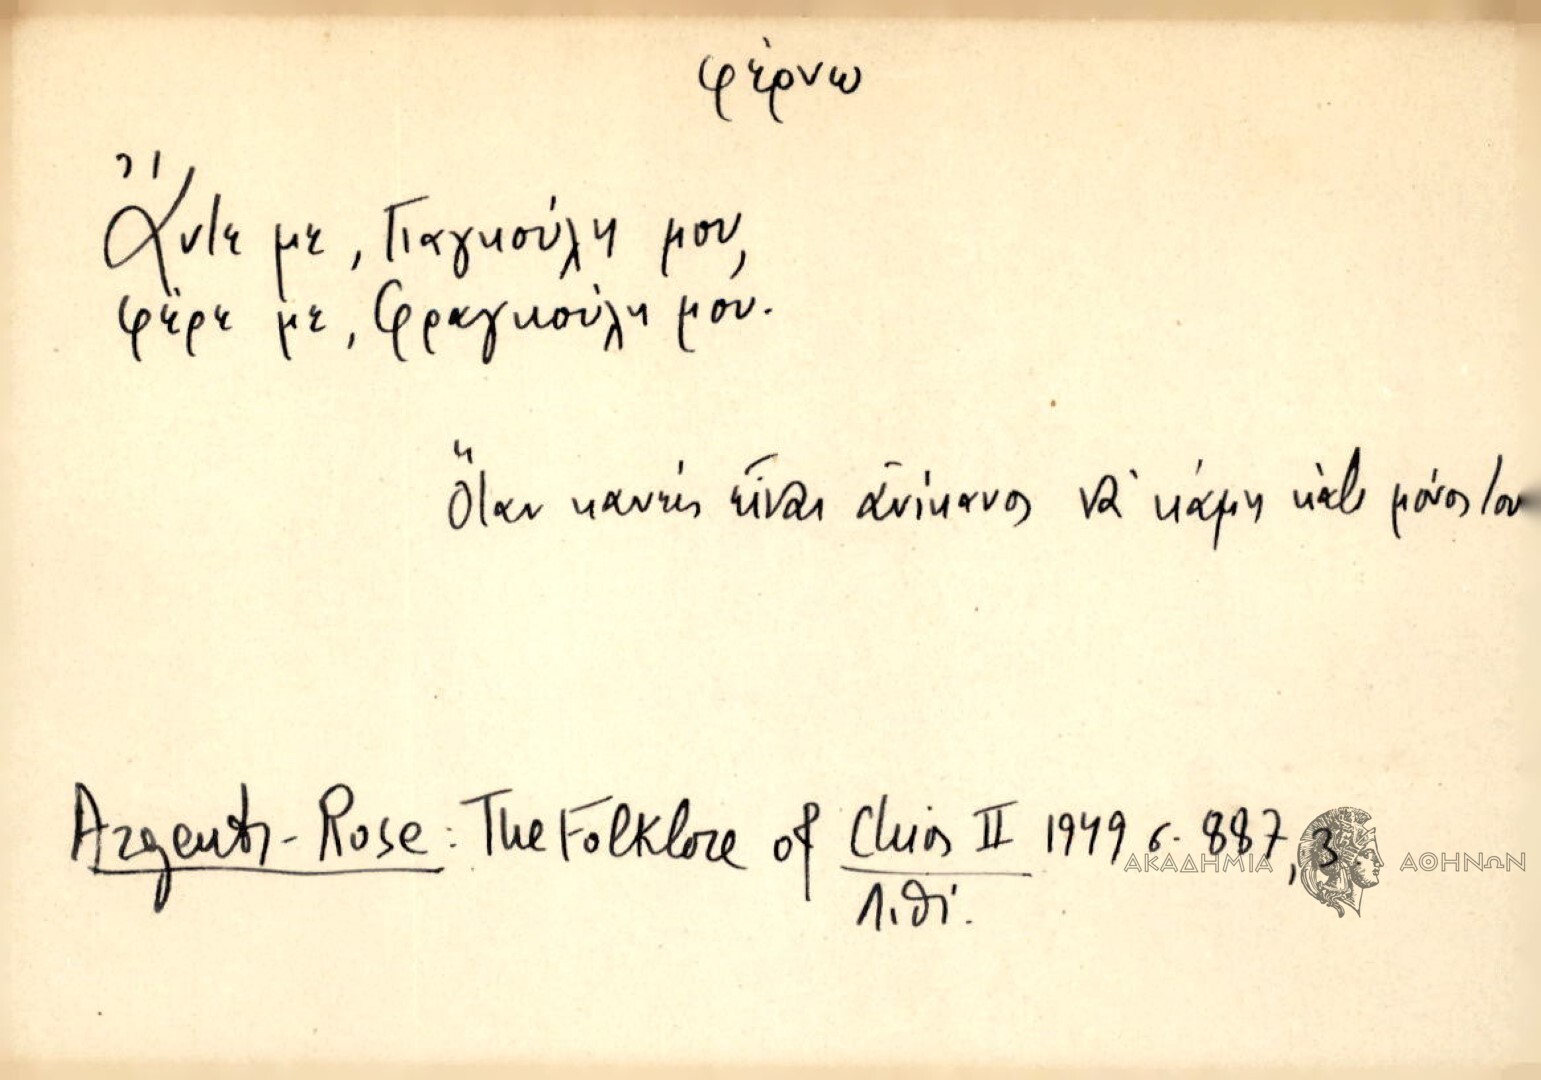 φέρνω
Ἄντε με, Γιαγκούλη μου,
φέρε με, Φραγκούλη μου.
Ὅταν κανείς εἶναι ἀνίκανος νὰ κάμη κάτι μόνος του
Argenti-Rose: The Folklore of Chios II 1949 σ. 887, 3
Λιθί.
ΑΚΑΔΗΜΙΑ ΑΘΗΝΩΝ